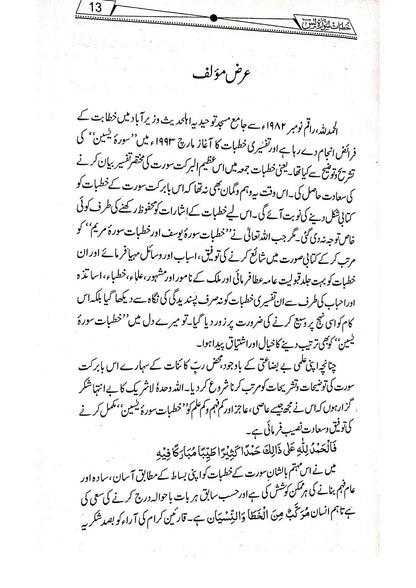 13
خطبات سورۂ یٰسٓ
عرض مؤلف
الحمدللہ، راقم نومبر ۱۹۸۲ء سے جامع مسجد توحیدیہ اہلحدیث وزیر آباد میں خطابت کے
فرائض انجام دے رہا ہے اور تفسیری خطبات کا آغاز مارچ ۱۹۹۳ء میں ’’سورۂ یٰسین‘‘ کی
تشریح و توضیح سے کیا تھا۔ یعنی خطبات جمعہ میں اس عظیم البرکت سورت کی مختصر تفسیر بیان کرنے
کی سعادت حاصل کی۔ اس وقت یہ وہم و گمان بھی نہ تھا کہ اس بابرکت سورت کے خطبات کو
کتابی شکل دینے کی نوبت آئے گی۔ اس لیے خطبات کے اشارات کو محفوظ رکھنے کی طرف کوئی
خاص توجہ نہ دی گئی۔ مگر جب اللہ تعالیٰ نے ’’خطبات سورۂ یوسف اور خطبات سورۂ مریم‘‘ کو
مرتب کر کے کتابی صورت میں شائع کرنے کی توفیق، اسباب اور وسائل مہیا فرمائے اور ان
خطبات کو بہت جلد قبولیت عامہ عطا فرمائی اور ملک کے نامور اور مشہور، علماء، خطباء، اساتذہ
اور احباب کی طرف سے ان تفسیری خطبات کو نہ صرف پسندیدگی کی نگاہ سے دیکھا گیا بلکہ اس
کام کو اسی نہج پر وسیع کرنے کی ضرورت پر زور دیا گیا۔ تو میرے دل میں ’’خطبات سورۂ
یٰسین‘‘ کو بھی ترتیب دینے کا خیال اور اشتیاق پیدا ہوا۔
چنانچہ اپنی علمی بے بضاعتی کے باوجود، محض ربّ کائنات کے سہارے اس بابرکت
سورت کی توضیحات و تشریحات کو مرتب کرنا شروع کر دیا۔ اللہ وحدہٗ لاشریک کا بے انتہا شکر
گزار ہوں کہ اس نے مجھ جیسے عاصی، عاجز اور کم فہم و کم علم کو ’’خطبات سورۂ یٰسین‘‘ مکمل کرنے
کی توفیق و سعادت نصیب فرمائی ہے۔
فَالْحَمْدُ لِلّٰهِ عَلٰى ذَالِكَ حَمْدًا كَثِيْرًا طَيِّبًا مُبَارَكًا فِيْهِ
میں نے اس مہتم بالشان سورت کے خطبات کو اپنی بساط کے مطابق آسان، سادہ اور
عام فہم بنانے کی ہر ممکن کوشش کی ہے اور حسب سابق ہر بات باحوالہ درج کرنے کی سعی کی
ہے تاہم انسان مُرَكَّبٌ مِنَ الْخَطَأِ وَالنِّسْيَان ہے۔ قارئین کرام کی آراء کو بصد شکریہ